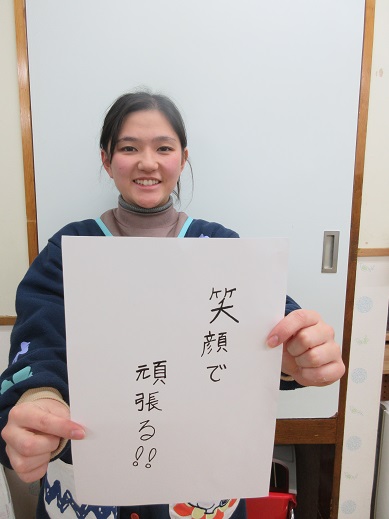 笑顔で
頑張る!!